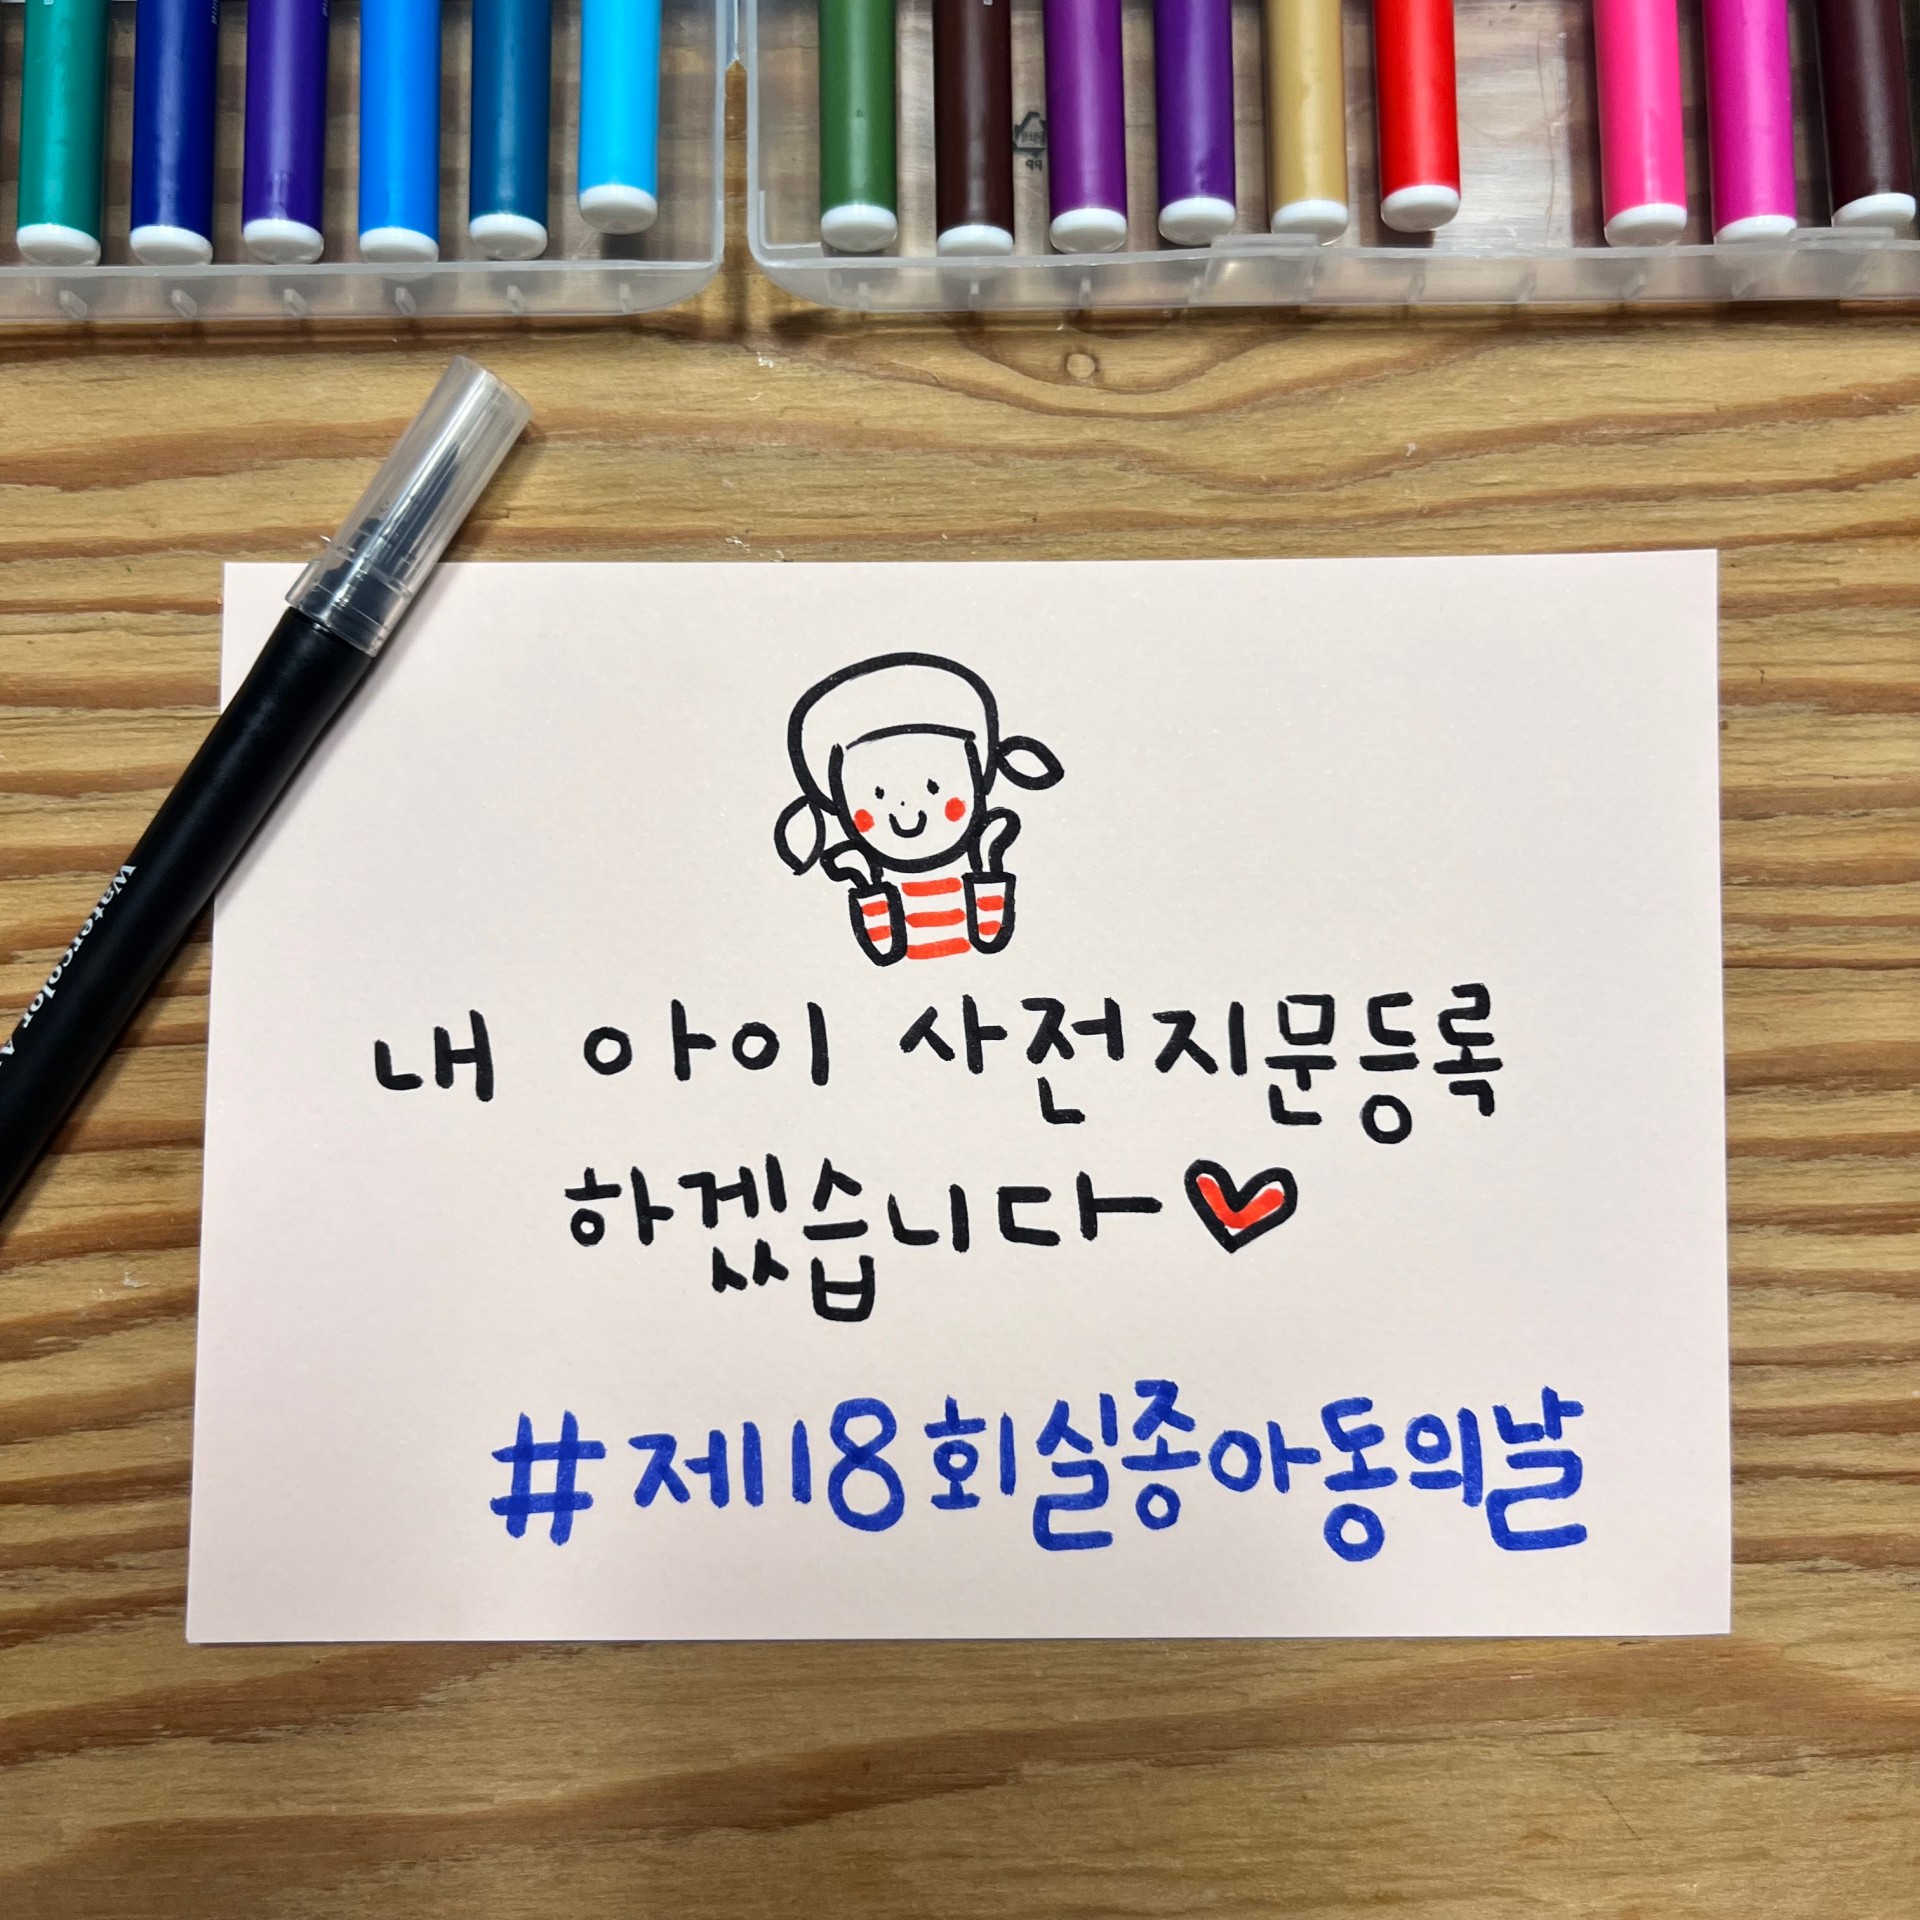 내 아이 사전지문등록
하겠습니다
#제18회실종아동의날
Watercolor
PP